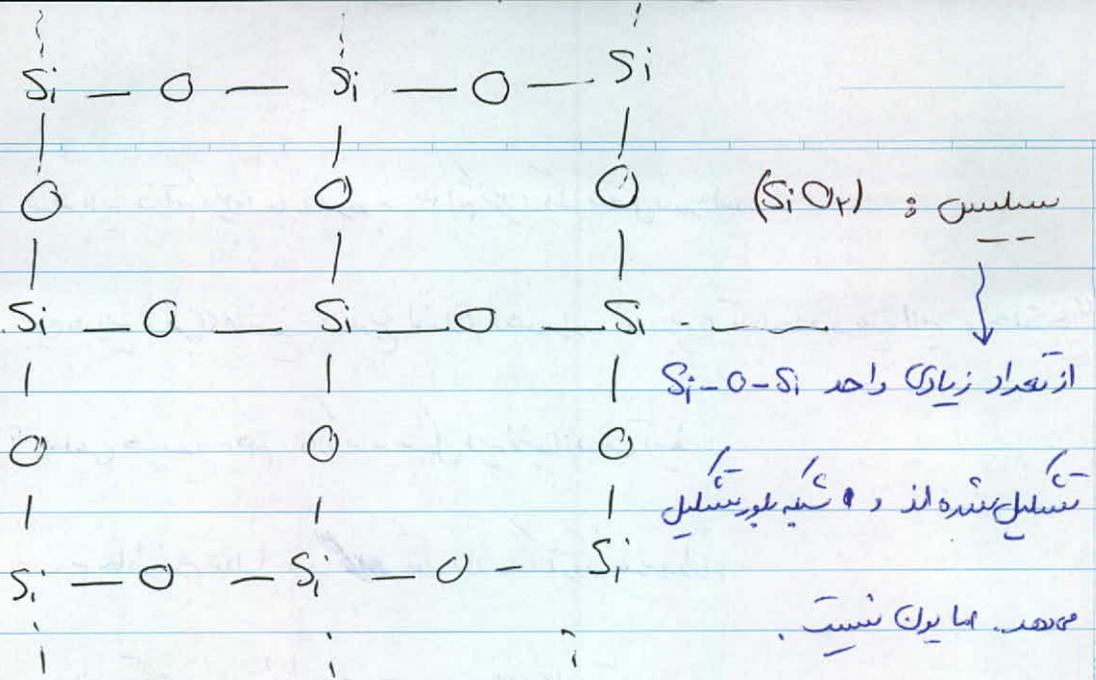 Si – O – Si – O – Si
O O O
Si – O – Si – O – Si
O O O
Si – O – Si – O – Si
سیلیس : (SiO۲)
از تعداد زیادی واحد Si-O-Si
تشکیل شده اند و شبکه بلور تشکیل
می دهد. اما یون نیست.